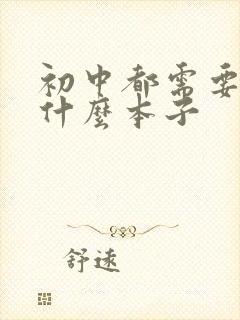 初中都需要
什麼本子
舒遠